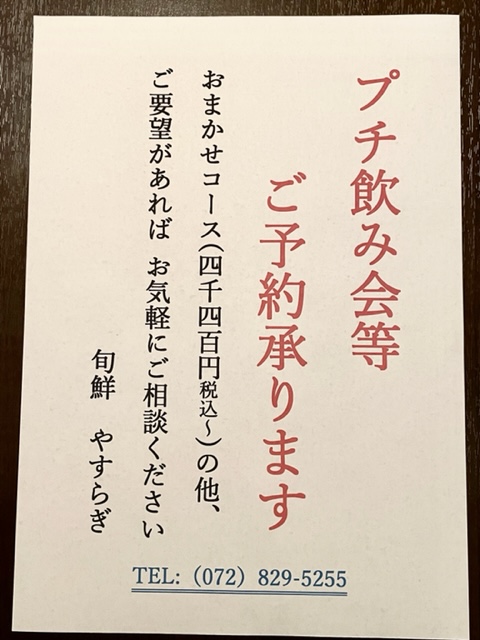 プチ飲み会等
ご予約承ります
おまかせコース(四千四百円税込〜)の他、
ご要望があれば お気軽にご相談ください
旬鮮 やすらぎ
TEL:（072）829-5255